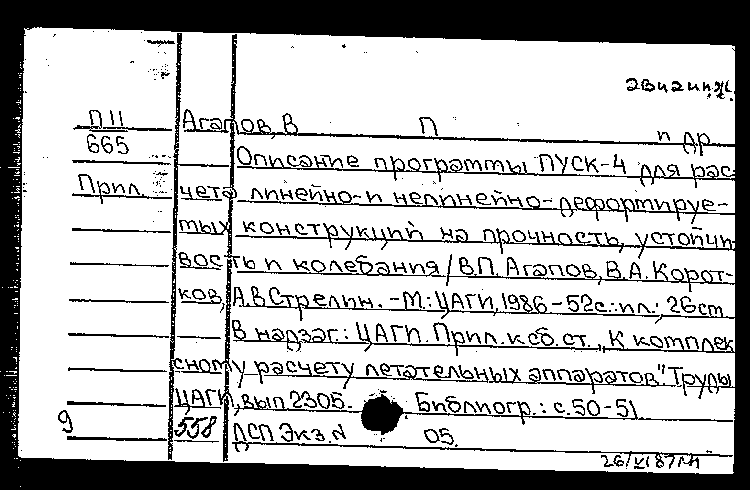 2Ви2инж.
П II Агапов, В П и др
665 Описание программы ПУСК-4 для рас-
Прил. чета линейно- и нелинейно-деформируе-
мых конструкций на прочность, устойчи
вость и колебания / В.П. Агапов, В.А. Корот-
ков, А.В Стрелин. -М: ЦАГИ, 1986 - 52с.: ил.; 26см
В надзаг.: ЦАГИ. Прил. к сб. ст. „К комплек
сному расчету летательных аппаратов" Труды
ЦАГИ, вып 2305. Библиогр.: с. 50-51.
9 558 ДСП Экз. N 05.